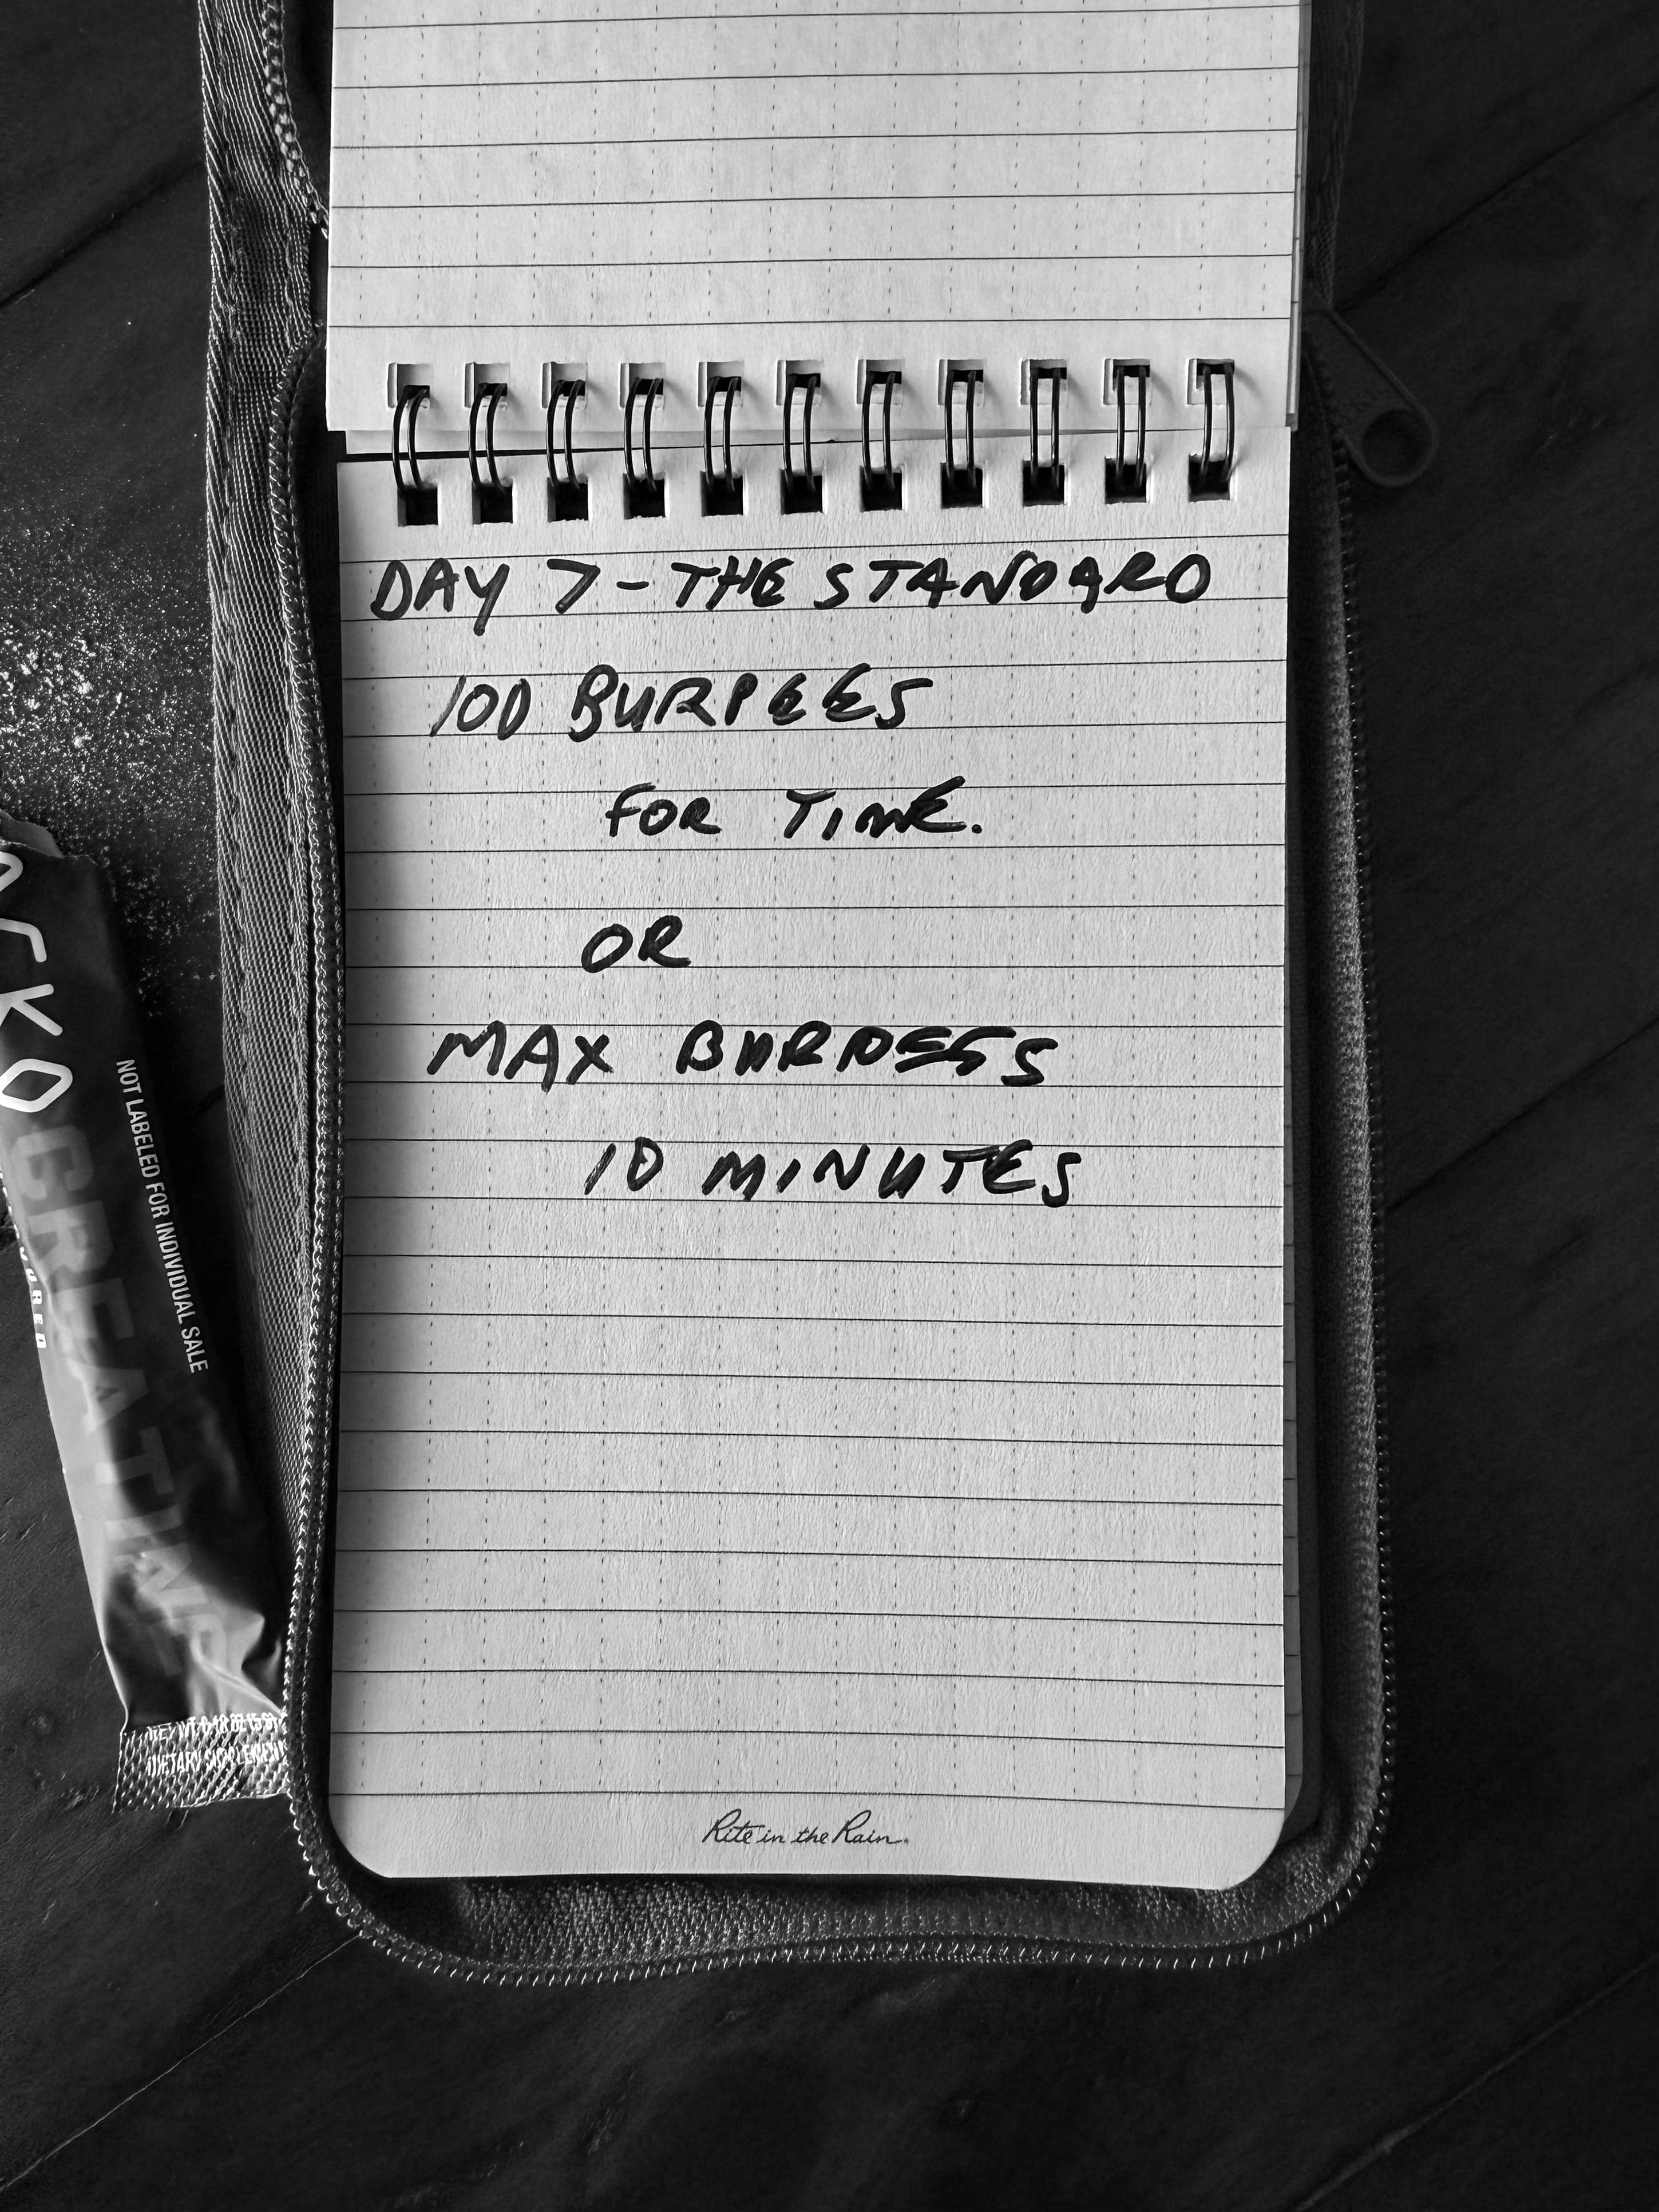 DAY 7 - THE STANDARD
100 BURPEES
FOR TIME.
OR
MAX BURPEES
10 MINUTES
Rite in the Rain.
CKO
CREATINE
NOT LABELED FOR INDIVIDUAL SALE